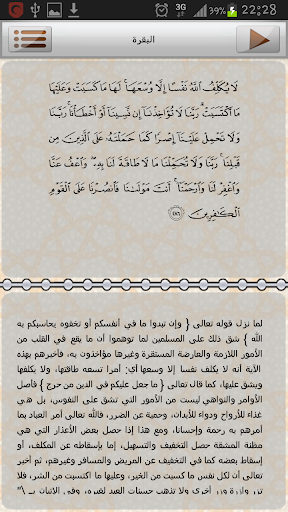 3G 22:28
البقرة
لَا يُكَلِّفُ اللَّهُ نَفْسًا إِلَّا وُسْعَهَا لَهَا مَا كَسَبَتْ وَعَلَيْهَا
مَا اكْتَسَبَتْ رَبَّنَا لَا تُؤَاخِذْنَا إِن نَّسِينَا أَوْ أَخْطَأْنَا رَبَّنَا
وَلَا تَحْمِلْ عَلَيْنَا إِصْرًا كَمَا حَمَلْتَهُ عَلَى الَّذِينَ مِن
قَبْلِنَا رَبَّنَا وَلَا تُحَمِّلْنَا مَا لَا طَاقَةَ لَنَا بِهِ وَاعْفُ عَنَّا
وَاغْفِرْ لَنَا وَارْحَمْنَا أَنتَ مَوْلَانَا فَانصُرْنَا عَلَى الْقَوْمِ
الْكَافِرِينَ ٢٨٦
لما نزل قوله تعالى { وإن تبدوا ما في أنفسكم أو تخفوه يحاسبكم به
الله } شق ذلك على المسلمين لما توهموا أن ما يقع في القلب من
الأمور اللازمة والعارضة المستقرة وغيرها مؤاخذون به، فأخبرهم بهذه
الآية أنه لا يكلف نفسا إلا وسعها أي: أمرا تسعه طاقتها، ولا يكلفها
ويشق عليها، كما قال تعالى { ما جعل عليكم في الدين من حرج } فأصل
الأوامر والنواهي ليست من الأمور التي تشق على النفوس، بل هي
غذاء للأرواح ودواء للأبدان، وحمية عن الضرر، فالله تعالى أمر العباد بما
أمرهم به رحمة وإحسانا، ومع هذا إذا حصل بعض الأعذار التي هي
مظنة المشقة حصل التخفيف والتسهيل، إما بإسقاطه عن المكلف، أو
إسقاط بعضه كما في التخفيف عن المريض والمسافر وغيرهم، ثم أخبر
تعالى أن لكل نفس ما كسبت من الخير، وعليها ما اكتسبت من الشر، فلا
تزر وازرة وزر أخرى ولا تذهب حسنات العبد لغيره، وفي الإتيان بـ \"